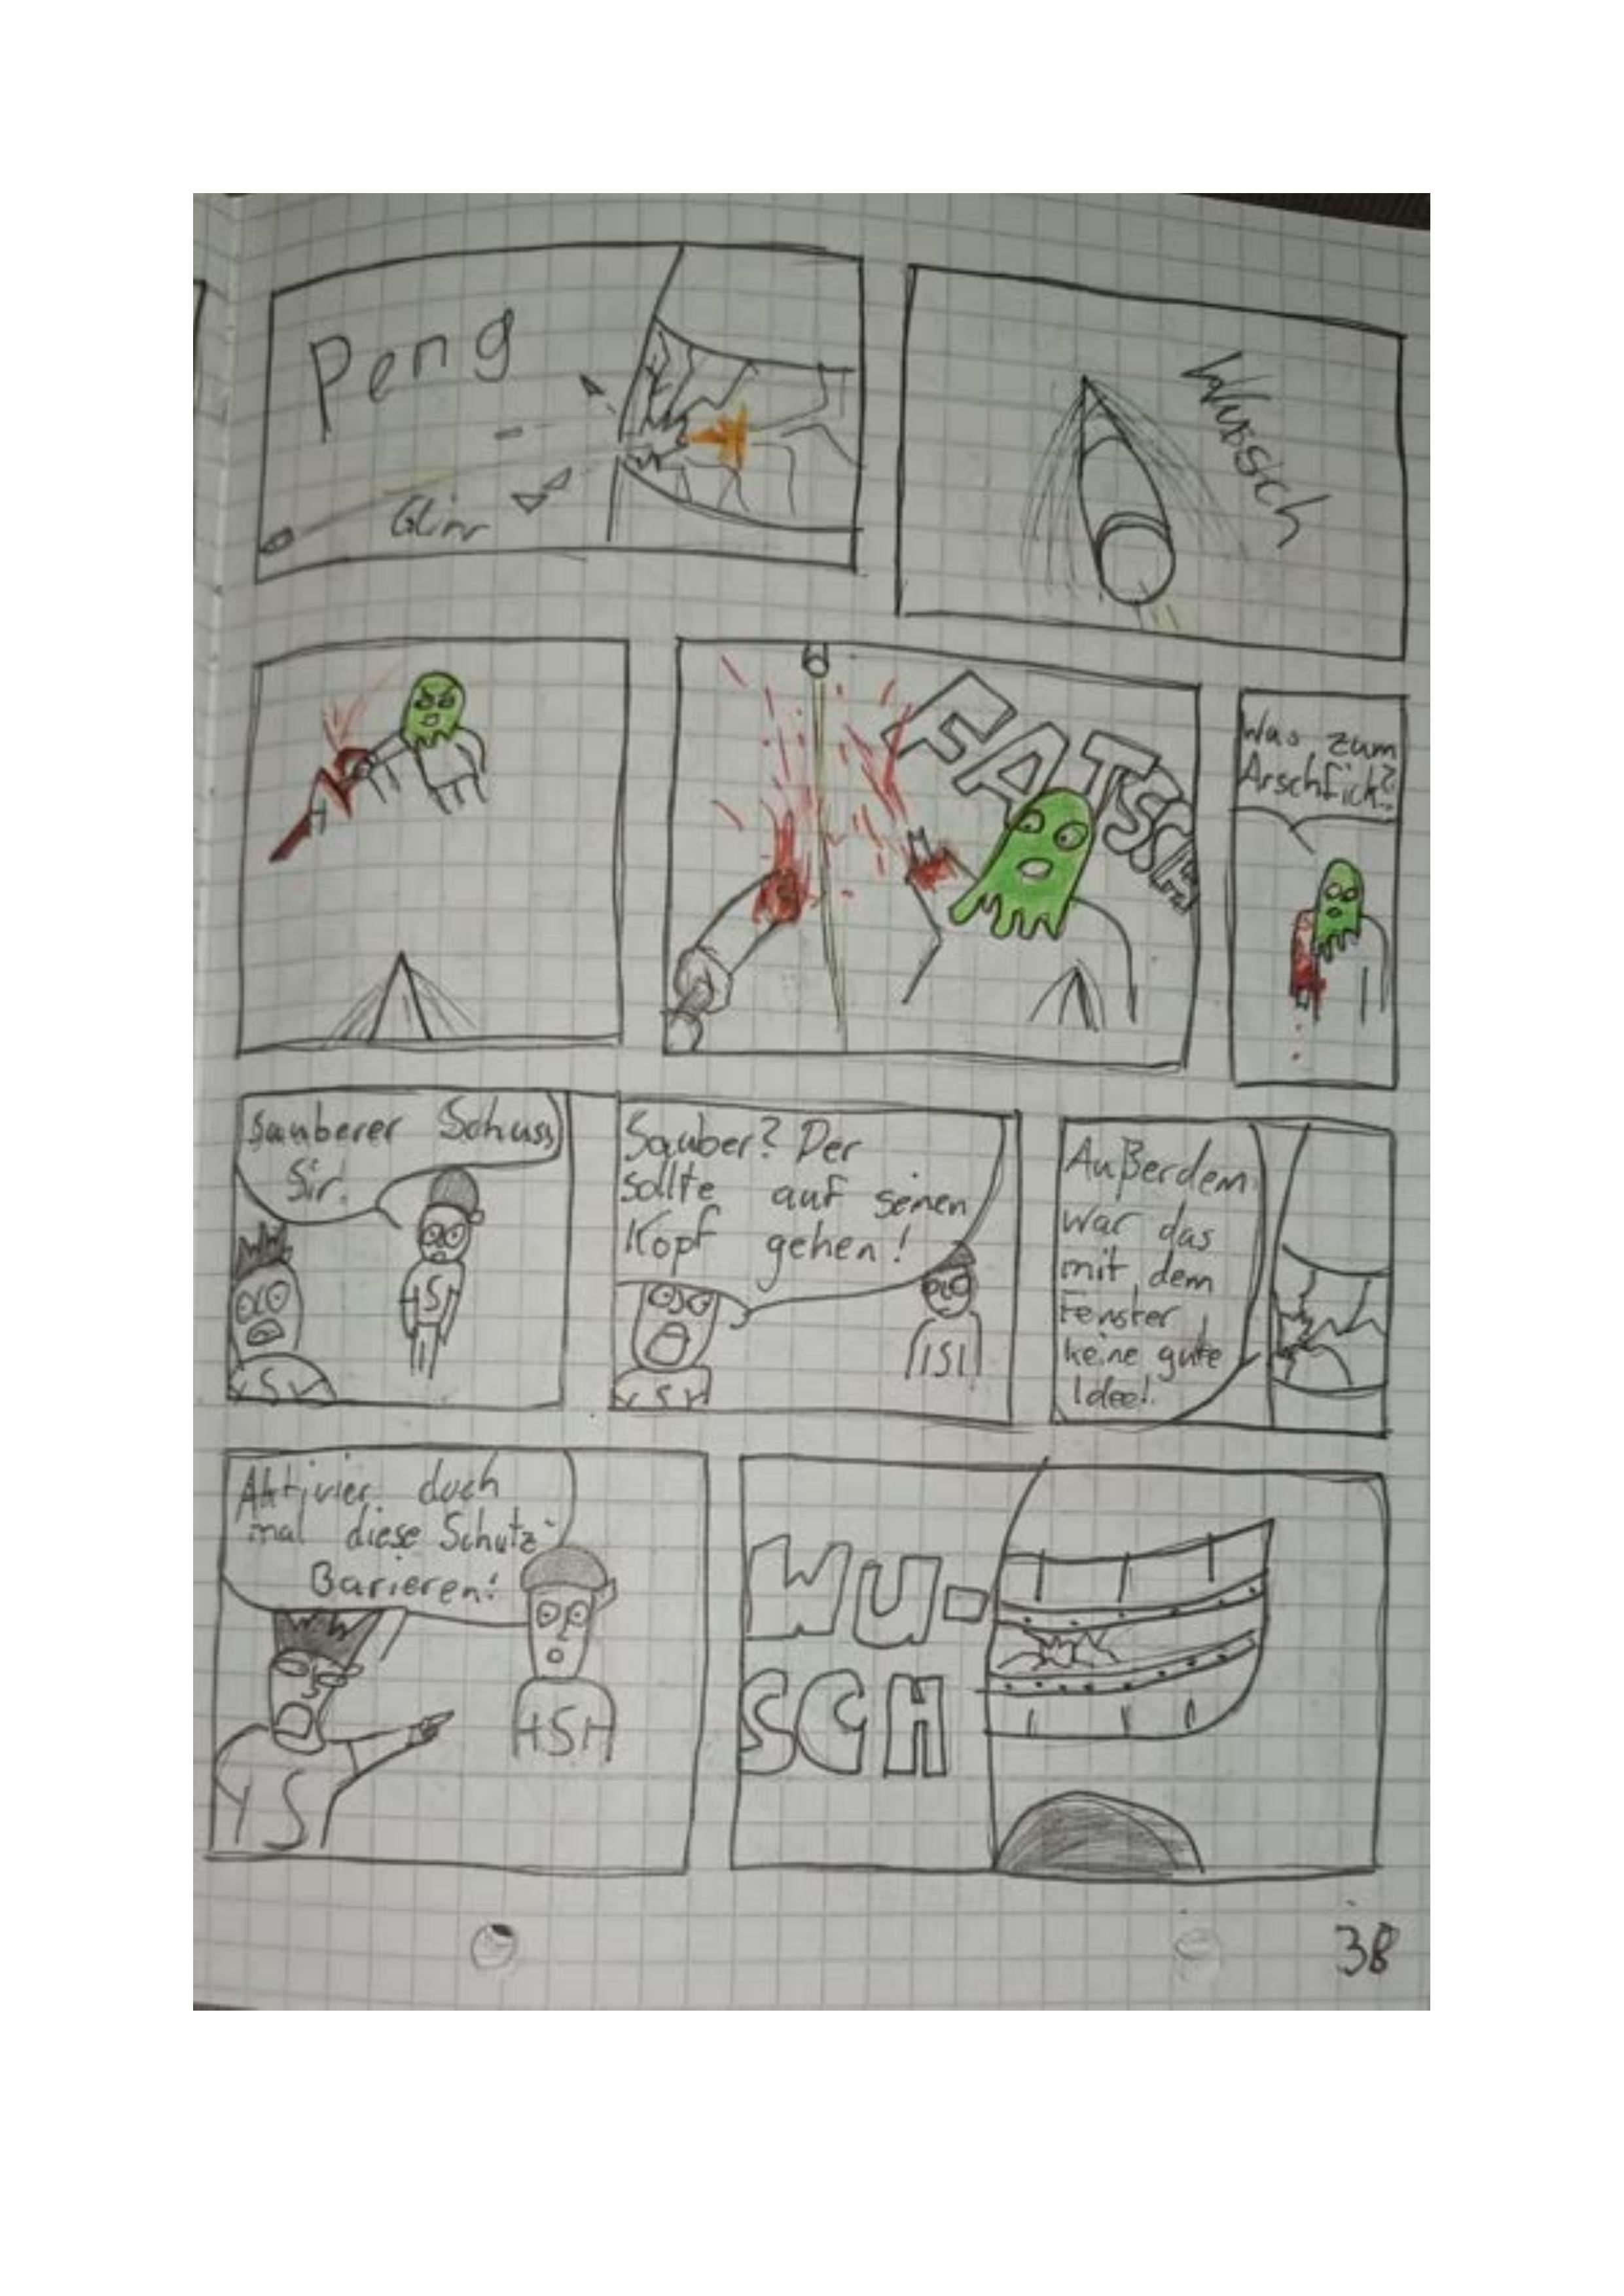 Peng
Glirr
Wusch
FATSCH
Was zum
Arschfick?
sauberer Schuss
Sir!
S
YSY
Sauber? Der
sollte auf seinen
Kopf gehen!
YSY
ISI
Außerdem
war das
mit dem
Fenster
keine gute
Idee!
Aktivier doch
mal diese Schutz-
Barieren!
YS
HSH
WU-
SCH
38